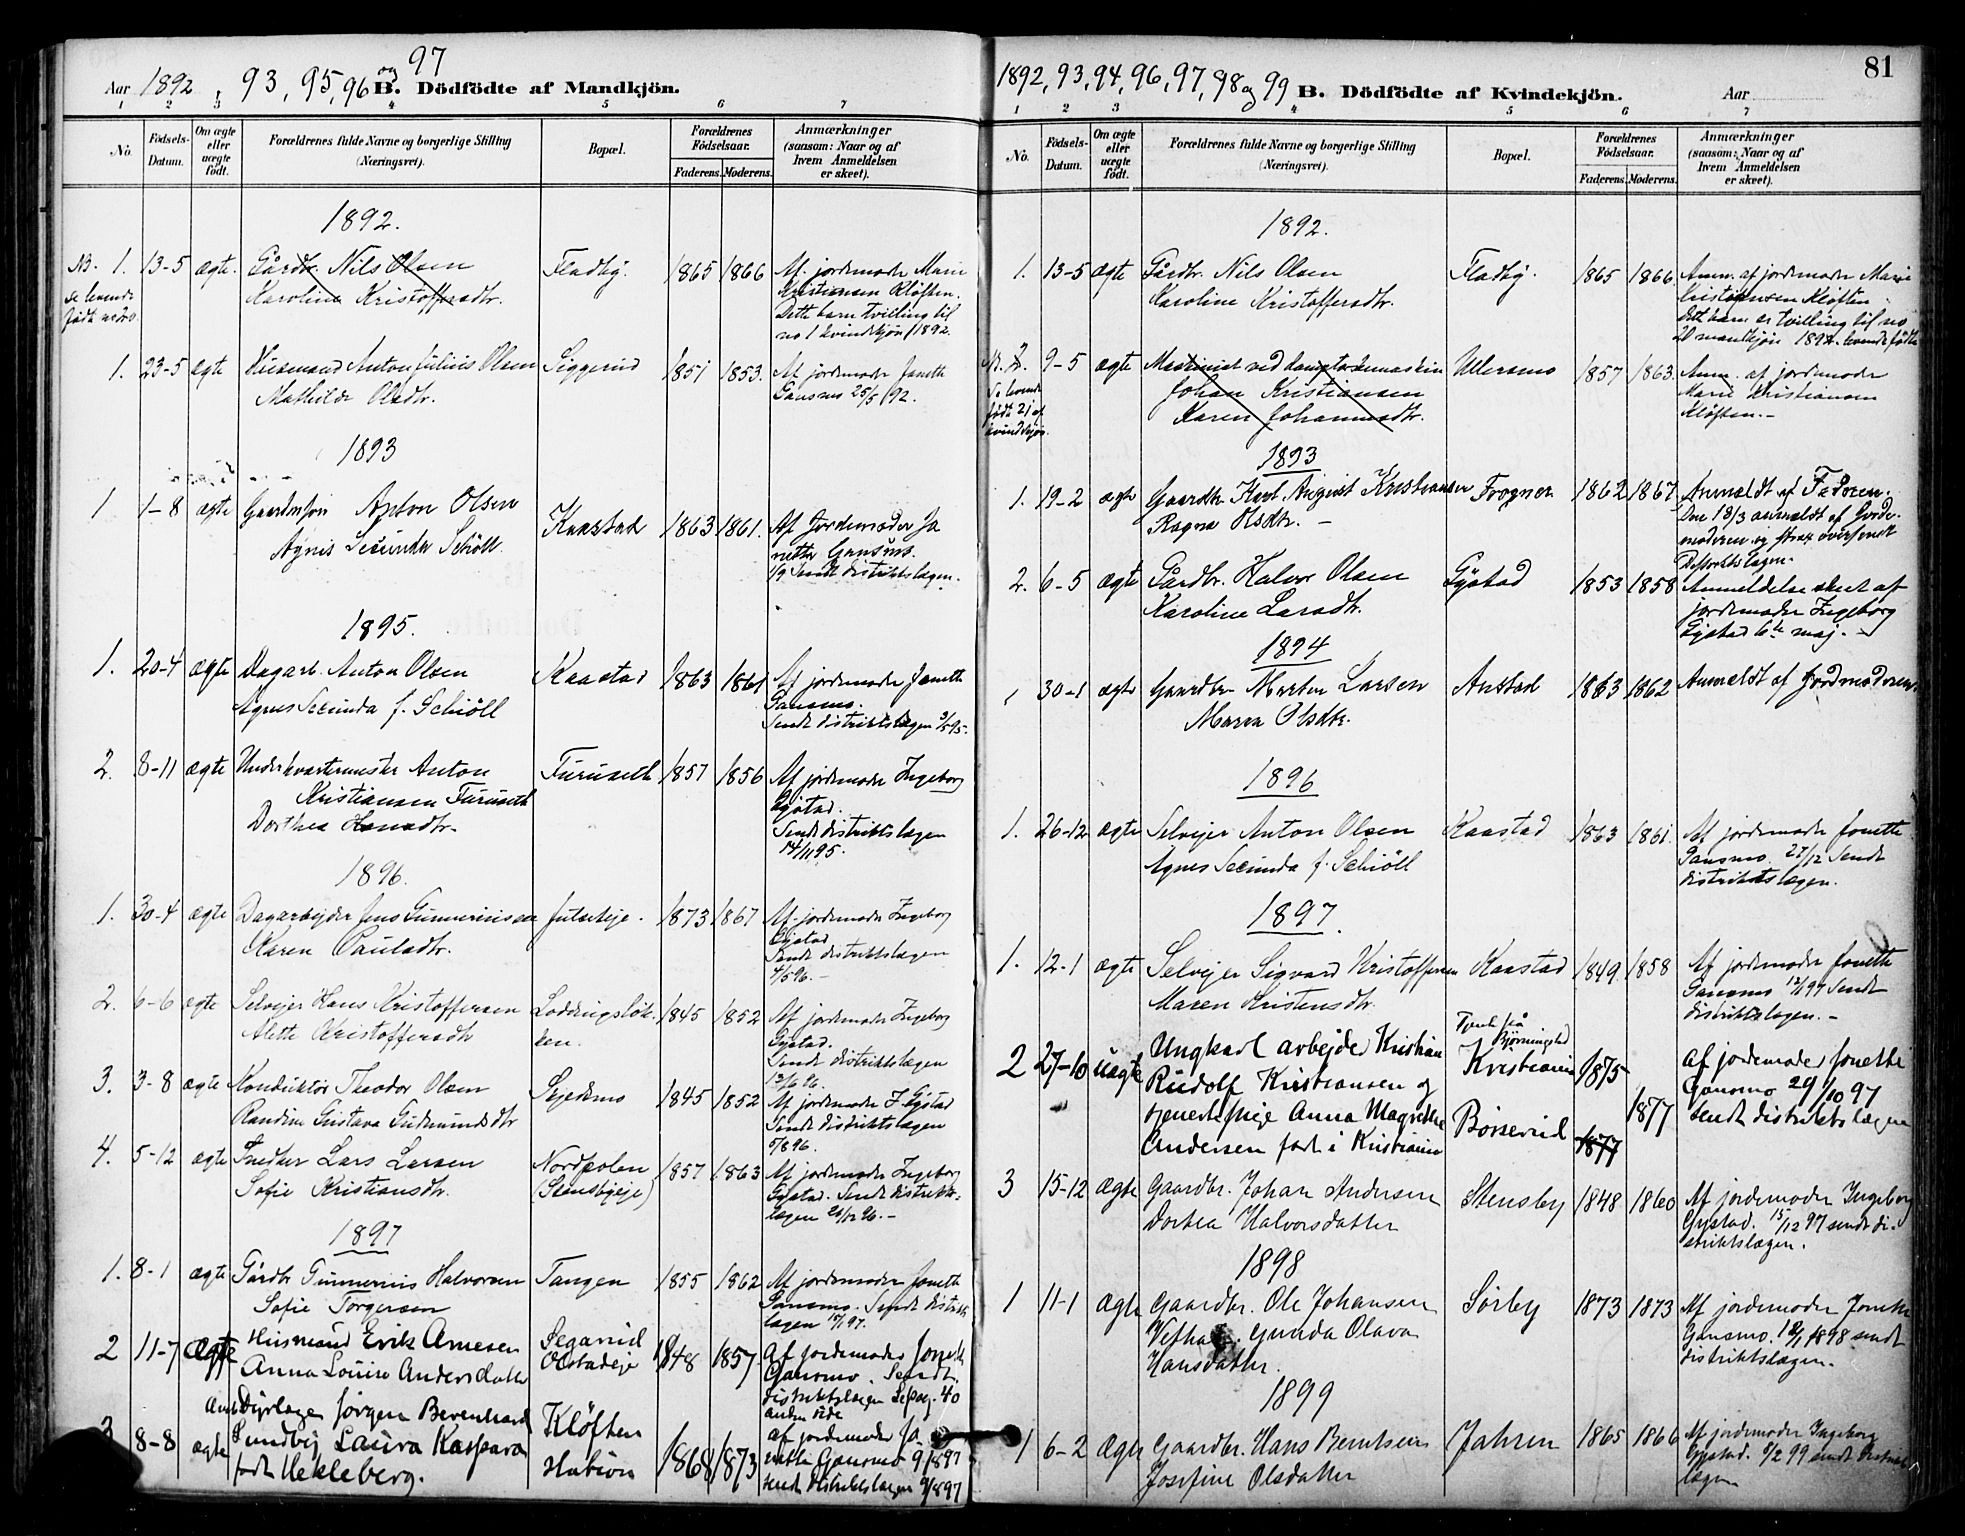 Aar 1892, 93, 95, 96 og 97 B. Dödfödte af Mandkjön.
1 2 3 4 5 6 7
No.
Födsels-Datum.
Om ægte eller uægte födt.
Forældrenes fulde Navne og borgerlige Stilling (Næringsvei).
Bopæl.
Forældrenes Födselsaar.
Faderens. Moderens.
Anmærkninger (saasom: Naar og af hvem Anmeldelsen er skeet).
1892.
NB. 1. 13-5 ægte. Gårdbr. Nils Olsen Fladby. 1865 1866 Af jordemoder Marie
se levende Karoline Kristoffersdtr. Kristiansen Kløften.
født
Dette barn tvilling til
no 1 kvindekjøn 1892.
1. 23-5 ægte Husmand Anton Julius Olsen Siggerud 1851 1853. Af jordemoder Janette
Mathilde Olsdtr. Gansmo 25/5 92.
1893
1 1-8 ægte Anton Olsen Kaastad 1863 1861. Af Jordemoder Ja
Agnis Secunda Schöll nette Gansmo.
1/9 Sendt distriktslægen.
1895.
1. 20-4 ægte Dagarb. Anton Olsen Kaastad 1863 1861 Af jordemoder Janette
Agnes Secunda f. Schiöll Gansmo.
Sendt distriktslægen 3/5 95.
2. 8-11 ægte Underkvartermester Anton Furuseth 1857 1856 Af jordemoder Ingeborg
Kristiansen Furuseth Gystad.
Dorthea Hansdtr. Sendt distriktslægen
14/11 95.
1896.
1. 30-4 ægte Dagarbejder Jens Gunneriussen Julseje. 1873 1867 Af jordemoder Ingeborg
Karen Paulsdtr. Gystad
Sendt distriktslægen
4/5 96.-
2. 6-6 ægte Selvejer Hans Kristoffersen Loddingsløk- 1845 1852 Af jordemoder Ingeborg
Alette Kristoffersdtr ken. Gystad.
Sendt distriktslægen
3. 3-8 ægte Konduktør Theodor Olsen 1845 1852 Af jordemoder I. Gystad
Randine Gustava Gudmundsdtr Sendt distriktslægen
5/8 96.
4. 5-12 ægte Snedker Lars Larsen Nordpolen 1857 1863 Af jordemoder Ingeborg
Sofie Kristiansdtr. (Stensbyeje) Gystad. Sendt distrikts-
lægen
1897
1. 8-1 ægte Gårdbr Gunnerius Halvorsen Tangen 1855 1862 Af jordemoder Janette
Sofie Torgersen Gansmo. Sendt distrikts
lægen
2 11-7 ægte Husmand Erik Arnesen 1848 1857 af jordemoder Janette
Anna Louise Andersdatter Gansmo. Sendt
distriktslægen Se pag. 40
anden side
3 8-8 ægte Amts Dyrlæge Jørgen Berenhard Kløften 1868 1873 af jordemoder Ja
Sundbÿ Laura Kaspara Station nette Gansmo 9/8 97
født Hekleberg. sendt distriktslægen 9/8 97
1892, 93, 94, 96, 97, 98 og 99 B. Dödfödte af Kvindekjön. Aar 81
1 2 3 4 5 6 7
No.
Födsels-Datum.
Om ægte eller uægte födt.
Forældrenes fulde Navne og borgerlige Stilling (Næringsvei).
Bopæl.
Forældrenes Födselsaar.
Faderens. Moderens.
Anmærkninger (saasom: Naar og af hvem Anmeldelsen er skeet).
1892.
1. 13-5 ægte Gårdbr. Nils Olsen Fladby. 1865 1866 Anm. af jordemoder Marie
Karoline Kristoffersdtr. Kristiansen Kløften.
Dette barn er tvilling til no
20 mandkjøn 1892. levende fødte
2. 9-5 ægte Maskinist ved Ullersmo 1857 1863. Anm. af jordemoder
Johan Kristiansen Marie Kristiansen
Karen Johannesdtr. Kløften.-
født 21 af
kvindekjøn.
1893
1. 19-2 ægte Gaardbr. Karl August Kristiansen Frogner 1862 1867 Anmeldt af Faderen.
Ragna Olsdtr. - Den 18/3 anmeldt af Jorde-
moderen og strax oversendt
Distriktslægen.
2. 6-5 ægte Gårdbr. Halvor Olsen Gystad 1853 1858 Anmeldelse skeet af
Karoline Larsdtr. jordemoder Ingeborg
Gystad 6te maj.-
1894
30-1 ægte Gaardbr Morten Larsen Anstad 1863 1862 Anmeldt af Jordmoderen.
Maren Olsdtr.
1896
1. 26-12 ægte Selvejer Anton Olsen Kaastad 1863 1861. Af jordemoder Janette
Agnes Secunda f. Schiöll Gansmo. 27/12 Sendt
distriktslægen.
1897.
1. 12-1 ægte Selvejer Sigvard Kristoffersen Kaastad 1849 1858 Af jordemoder Janette
Maren Kristensdtr. Gansmo 12/1 97 Sendt
distriktslægen.-
2 27-10 uægte Ungkarl arbejder Kristian Kristiania 1875 af jordemoder Janette
Rudolf Kristiansen og Gansmo 29/10 97
tjenestepige Anna Magrethe Børsrud 1877 1877 sendt distriktslægen
Andersen født i Kristiania
3 15-12 ægte Gaardbr. Johan Andersen Stensby 1848 1860 Af jordemoder Ingeborg
Dorthea Halvorsdatter Gystad. 15/12 97 sendt di-
striktslægen.
1898
1 11-1 ægte Gaardbr. Ole Johansen Sørby 1873 1873 Af jordemoder Janette
Gunda Olava Gansmo. 1898 sendt
Hansdatter. distriktslægen.
1899
1 6-2 ægte Gaardbr. Hans Berntsen Jahren 1865 1866 Af jordemoder Ingeborg
Josefine Olsdatter Gystad. 9/2 99 sendt distrikts
lægen